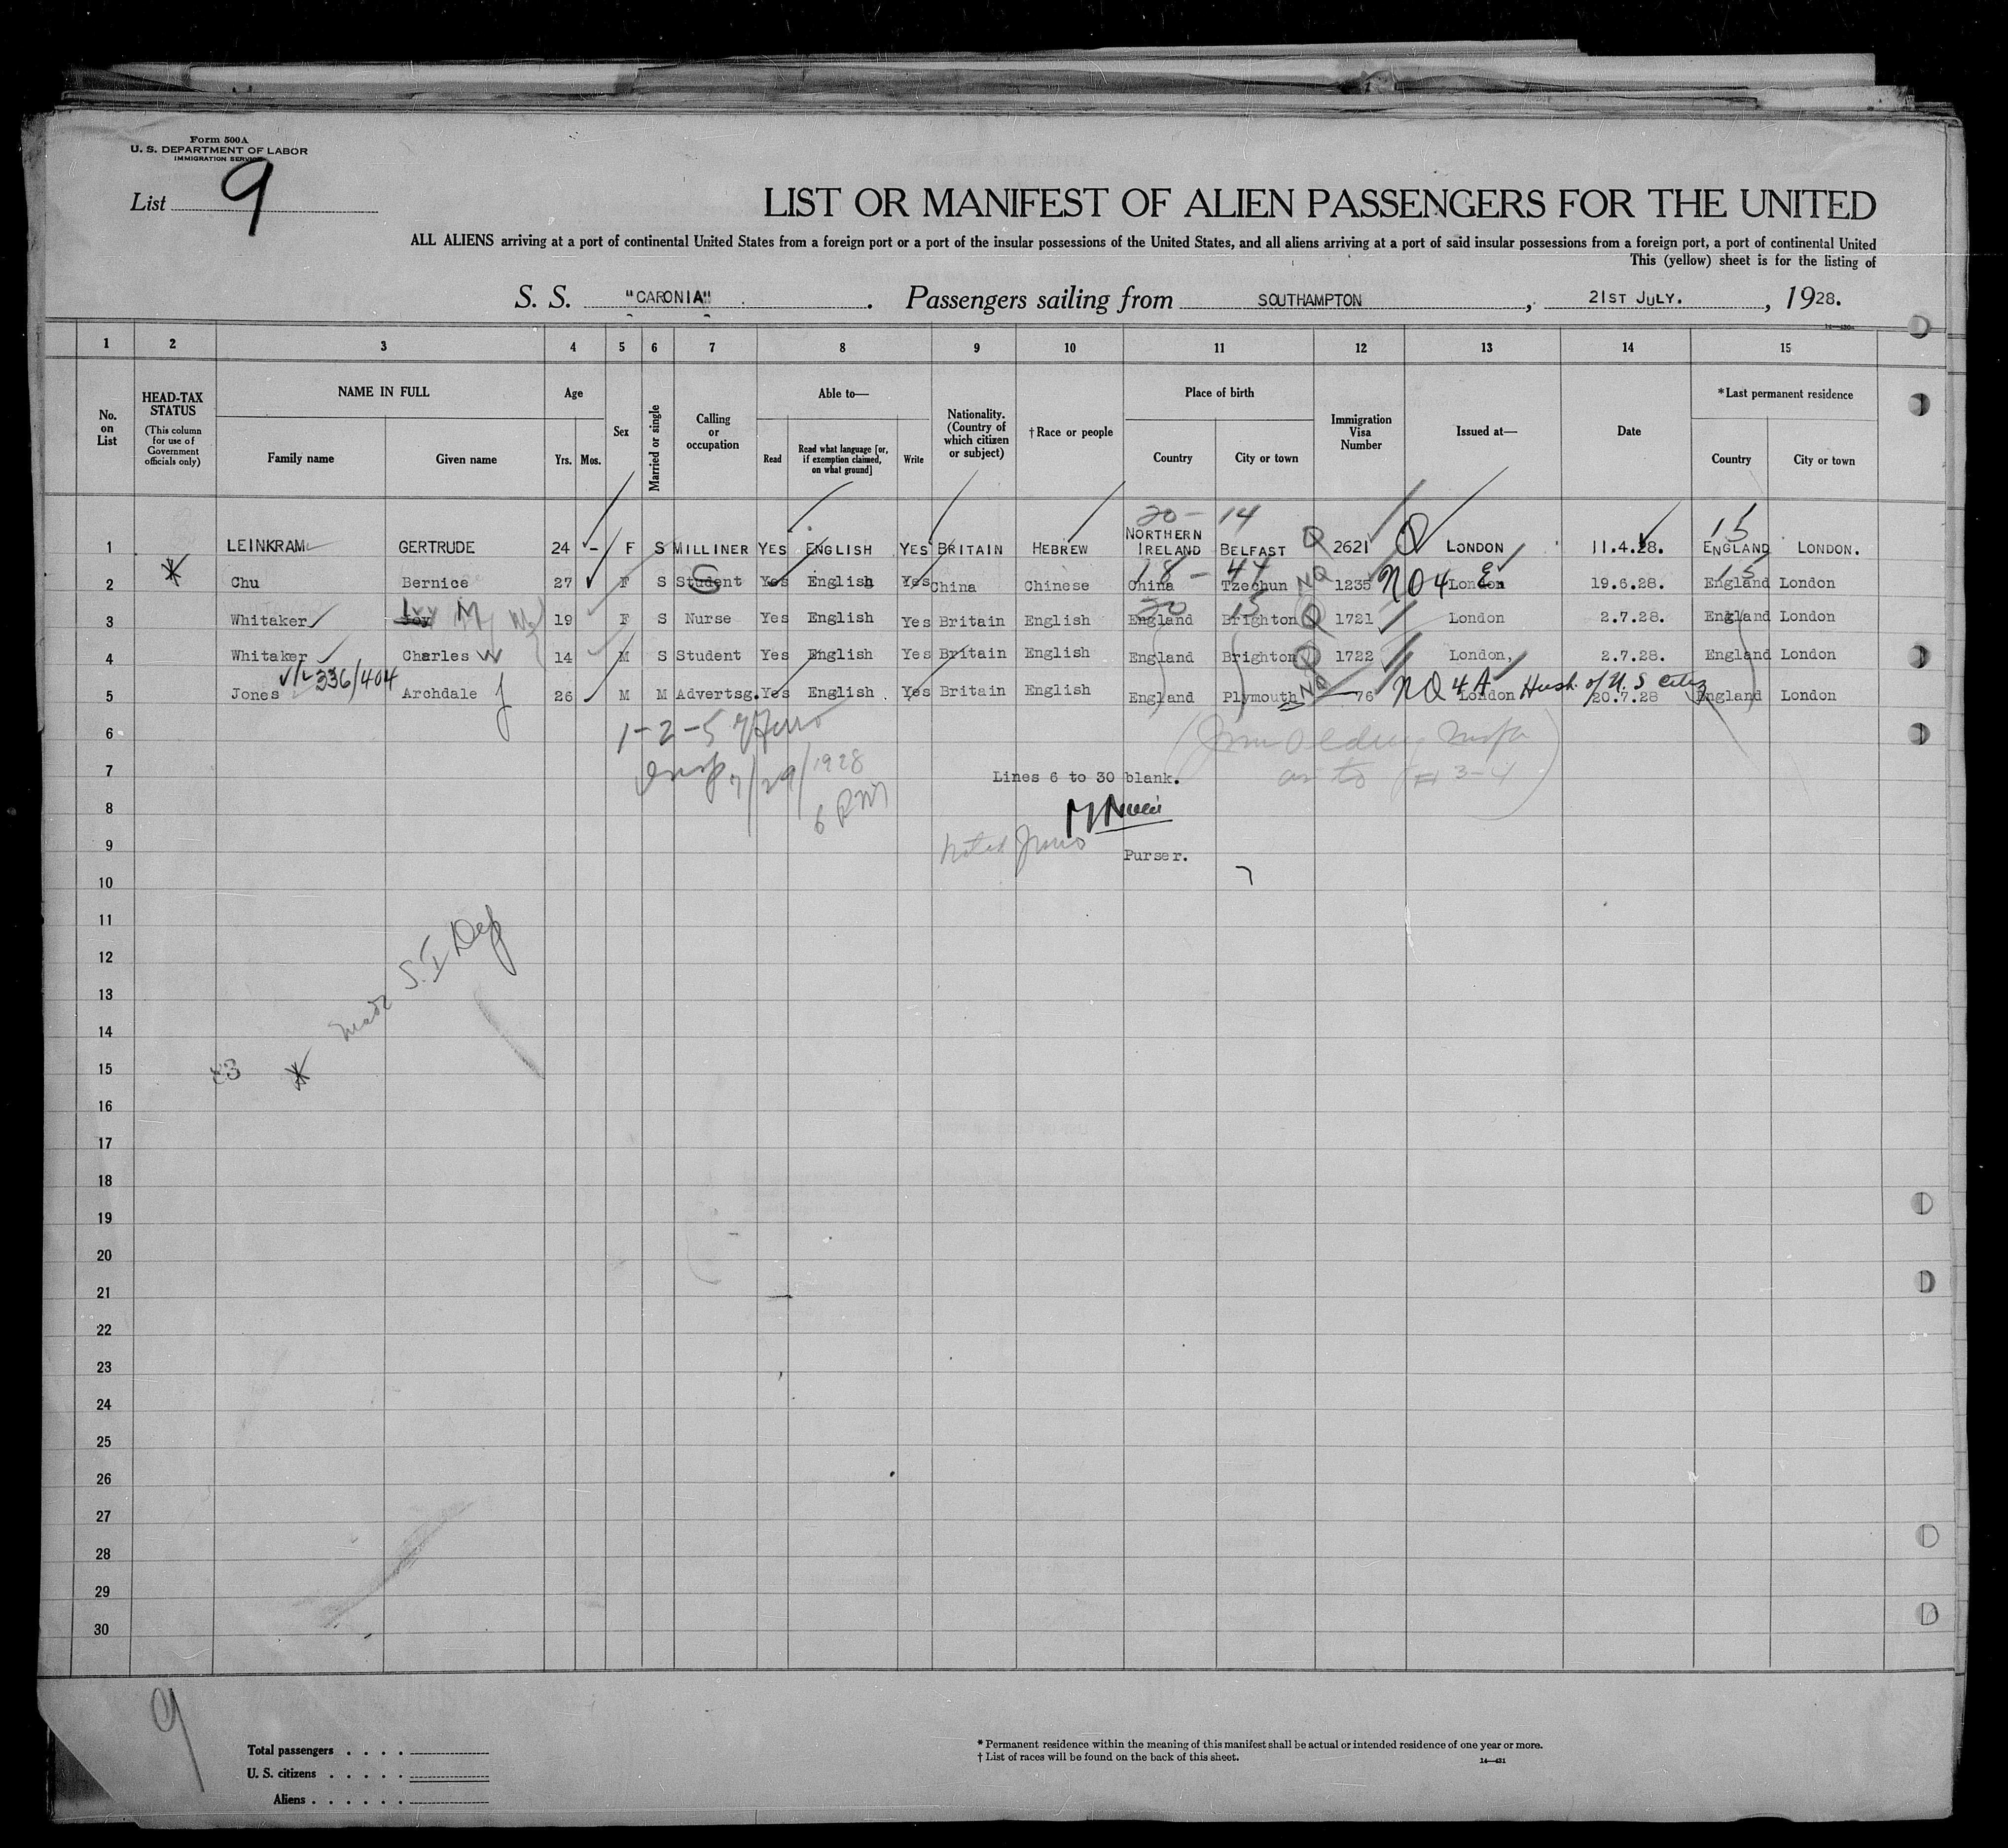 Form 500A
U. S. DEPARTMENT OF LABOR
IMMIGRATION SERVICE
List 9
LIST OR MANIFEST OF ALIEN PASSENGERS FOR THE UNITED
ALL ALIENS arriving at a port of continental United States from a foreign port or a port of the insular possessions of the United States, and all aliens arriving at a port of said insular possessions from a foreign port, a port of continental United
This (yellow) sheet is for the listing of
S. S. "CARONIA". Passengers sailing from SOUTHAMPTON, 21ST JULY., 1928.
1 2 3 4 5 6 7 8 9 10 11 12 13 14 15
No. on List
HEAD-TAX STATUS
(This column for use of Government officials only)
NAME IN FULL
Family name Given name
Age
Yrs. Mos.
Sex
Married or single
Calling or occupation
Able to—
Read
Read what language [or, if exemption claimed, on what ground]
Write
Nationality. (Country of which citizen or subject)
†Race or people
Place of birth
Country City or town
Immigration Visa Number
Issued at—
Date
*Last permanent residence
Country City or town
20 - 14 15
1 LEINKRAM GERTRUDE 24 - F S MILLINER YES ENGLISH YES BRITAIN HEBREW NORTHERN IRELAND BELFAST Q 2621 Q LONDON 11.4.28. ENGLAND LONDON.
18 - 44 15
2 Chu Bernice 27 F S Student Yes English Yes China Chinese China Tzechun NQ 1235 NQ 4 E London 19.6.28. England London
20 15
3 Whitaker Joy Ivy M 19 F S Nurse Yes English Yes Britain English England Brighton Q 1721 London 2.7.28. England London
4 Whitaker Charles W 14 M S Student Yes English Yes Britain English England Brighton Q 1722 London, 2.7.28. England London
336/404
5 Jones Archdale J 26 M M Advertsg. Yes English Yes Britain English England Plymouth NQ 76 NQ 4 A London Husb. of U. S citz 20.7.28 England London
6 1-2-5
7 Insp 7/29/1928
Lines 6 to 30 blank.
as to #3-4
6 PM
8
9 Noted
Purser.
10
11
12
13
Made S. I Dep
14
15
16
17
18
19
20
21
22
23
24
25
26
27
28
29
30
9
Total passengers
U. S. citizens
Aliens
* Permanent residence within the meaning of this manifest shall be actual or intended residence of one year or more.
† List of races will be found on the back of this sheet.
14—431